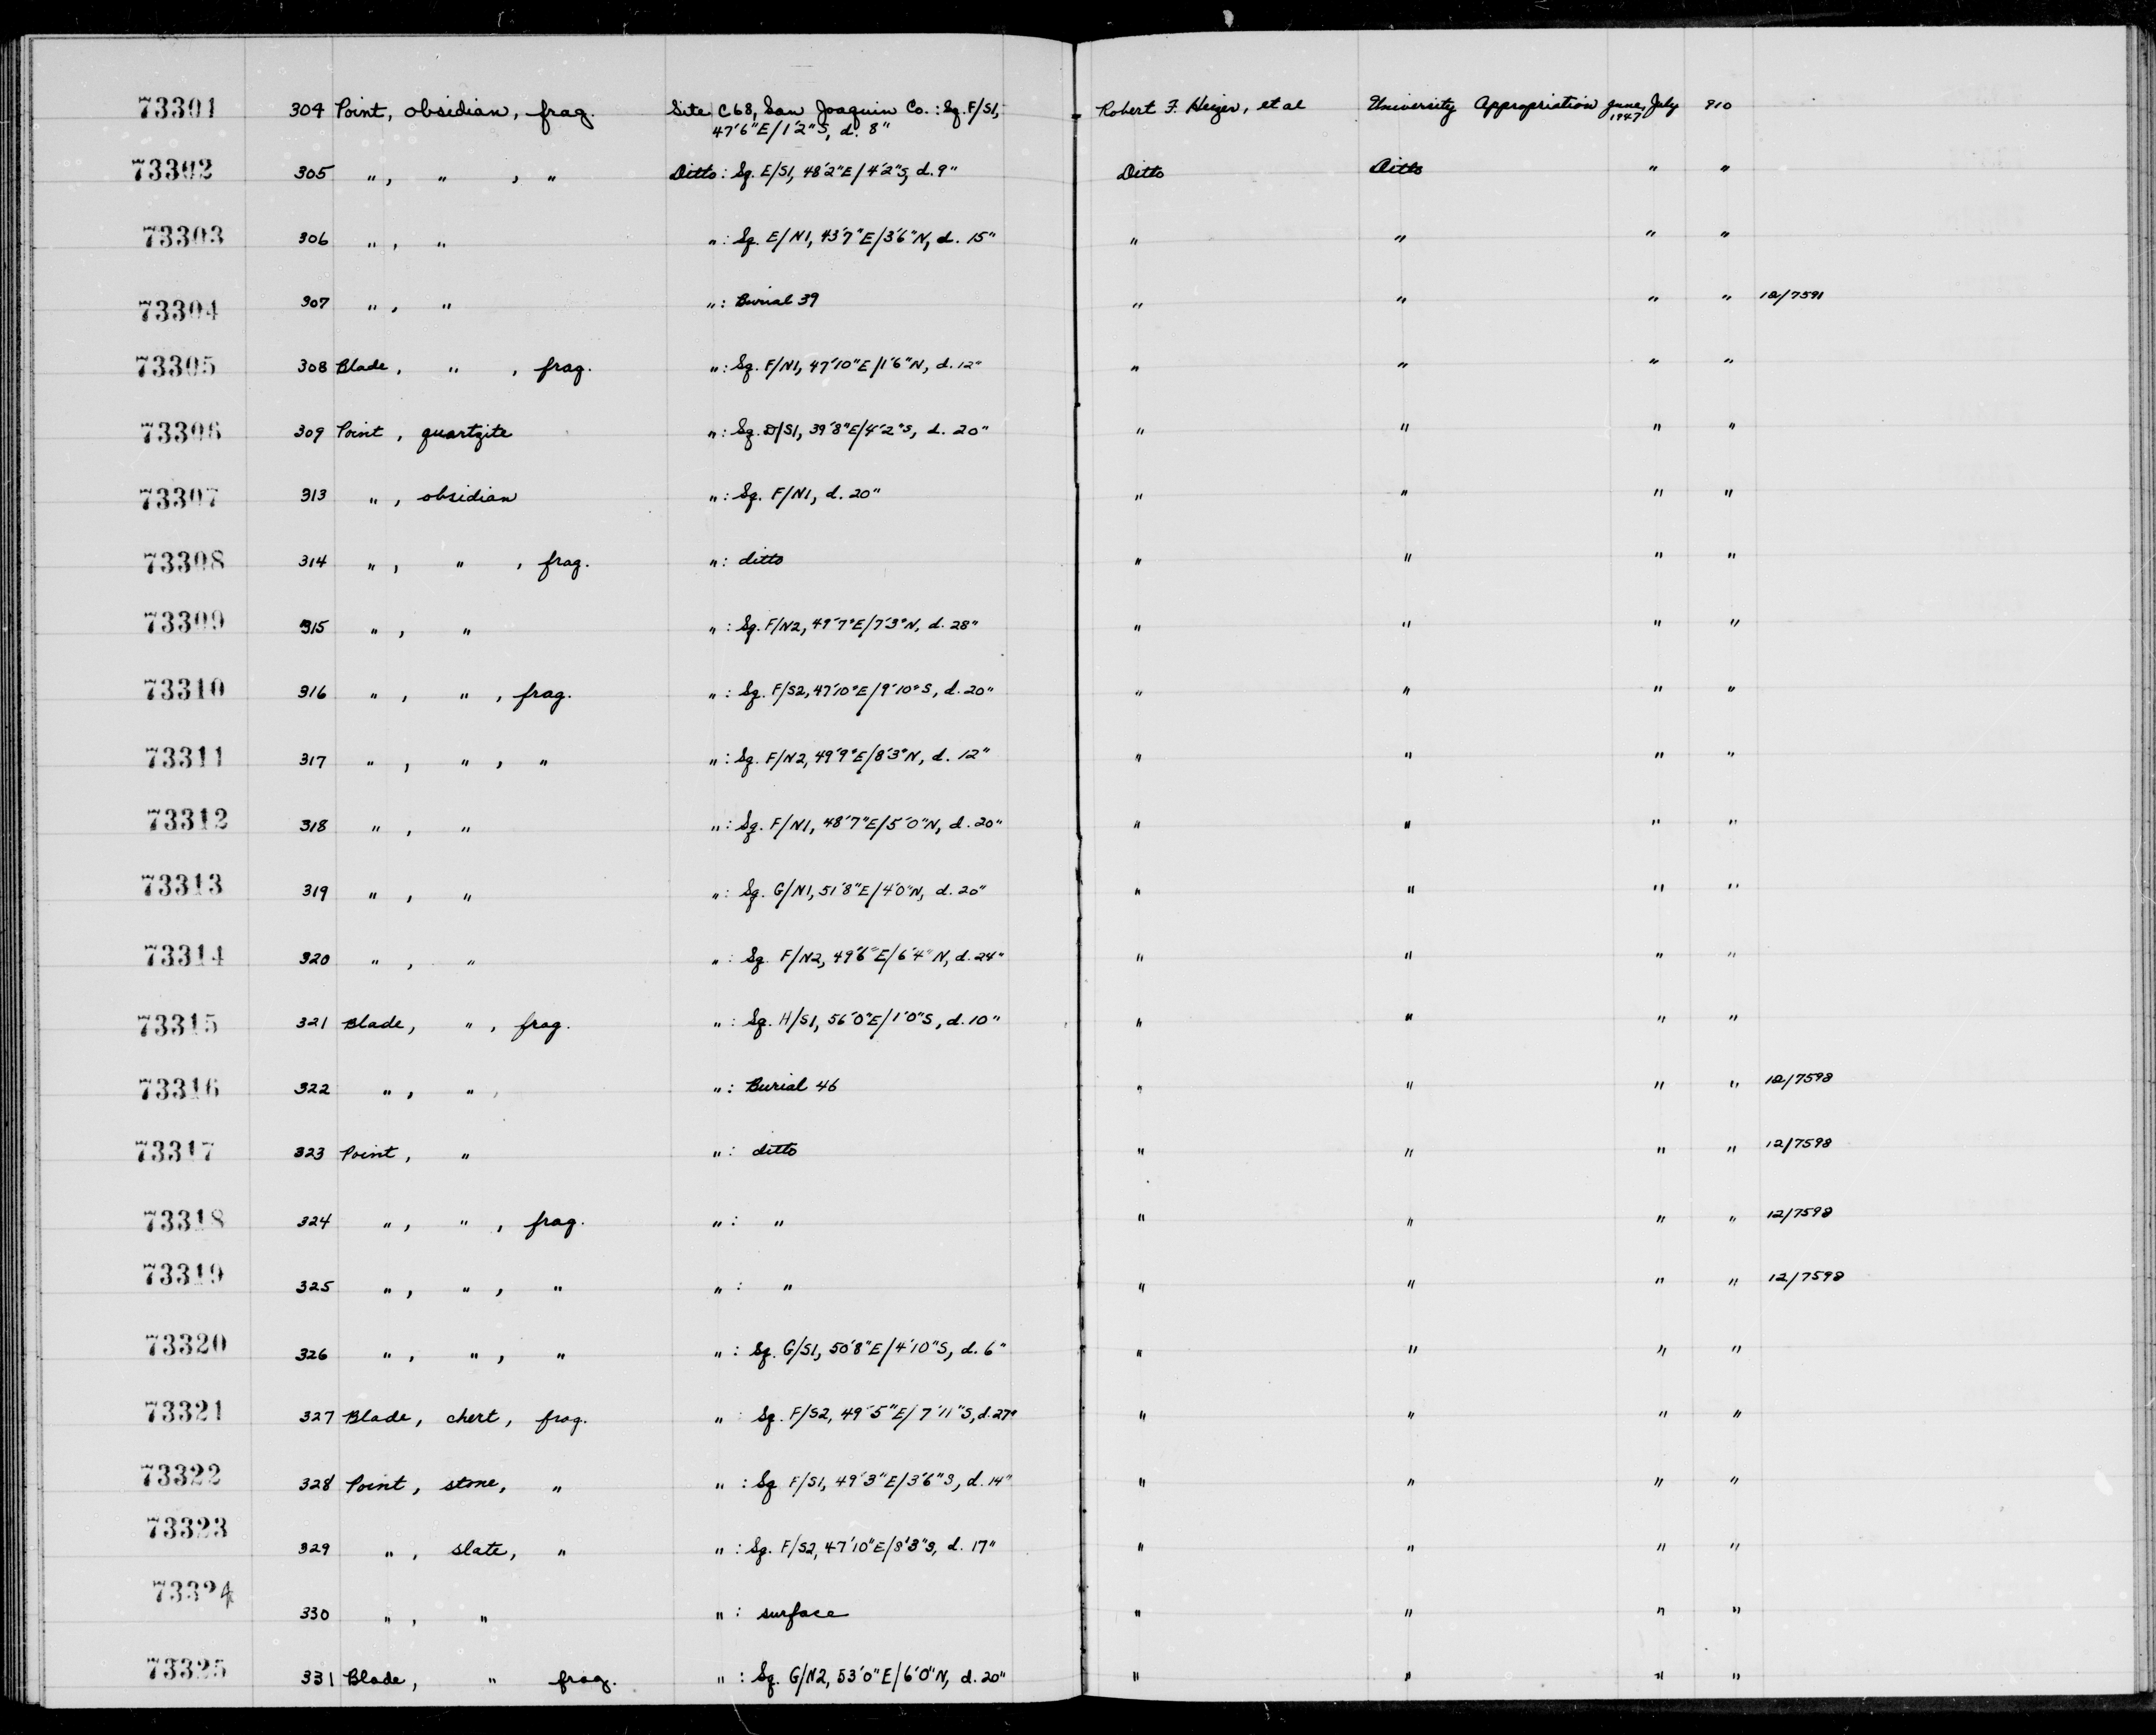 73301 304 Point, obsidian, frag. Site C68, San Joaquin Co.: Sq. F/S1, Robert F. Heizer, et al University Appropriation June, July 910
47'6"E/1'2"S, d. 8" 1947
73302 305 " , " , " Ditto: Sq. E/S1, 48'2"E/4'2"S, d. 9" Ditto Ditto " "
73303 306 " , " " : Sq. E/N1, 43'7"E/3'6"N, d. 15" " " " "
73304 307 " , " " : Burial 39 " " " " 12/7591
73305 308 Blade, " , frag. " : Sq. F/N1, 47'10"E/1'6"N, d. 12" " " " "
73306 309 Point, quartzite " : Sq. D/S1, 39'8"E/4'2"S, d. 20" " " " "
73307 313 " , obsidian " : Sq. F/N1, d. 20" " " " "
73308 314 " , " , frag. " : ditto " " " "
73309 315 " , " " : Sq. F/N2, 49'7"E/7'3"N, d. 28" " " " "
73310 316 " , " , frag. " : Sq. F/S2, 47'10"E/9'10"S, d. 20" " " " "
73311 317 " , " , " " : Sq. F/N2, 49'9"E/8'3"N, d. 12" " " " "
73312 318 " , " " : Sq. F/N1, 48'7"E/5'0"N, d. 20" " " " "
73313 319 " , " " : Sq. G/N1, 51'8"E/4'0"N, d. 20" " " " "
73314 320 " , " " : Sq. F/N2, 49'6"E/6'4"N, d. 24" " " " "
73315 321 Blade, " , frag. " : Sq. H/S1, 56'0"E/1'0"S, d. 10" " " " "
73316 322 " , " , " : Burial 46 " " " " 12/7598
73317 323 Point, " " : ditto " " " " 12/7598
73318 324 " , " , frag. " : " " " " " 12/7598
73319 325 " , " , " " : " " " " " 12/7598
73320 326 " , " , " " : Sq. G/S1, 50'8"E/4'10"S, d. 6" " " " "
73321 327 Blade, chert, frag. " : Sq. F/S2, 49'5"E/7'11"S, d. 27" " " " "
73322 328 Point, stone, " " : Sq. F/S1, 49'3"E/3'6"S, d. 14" " " " "
73323 329 " , slate, " " : Sq. F/S2, 47'10"E/8'3"S, d. 17" " " " "
73324 330 " , " " : surface " " " "
73325 331 Blade, " frag. " : Sq. G/N2, 53'0"E/6'0"N, d. 20" " " " "